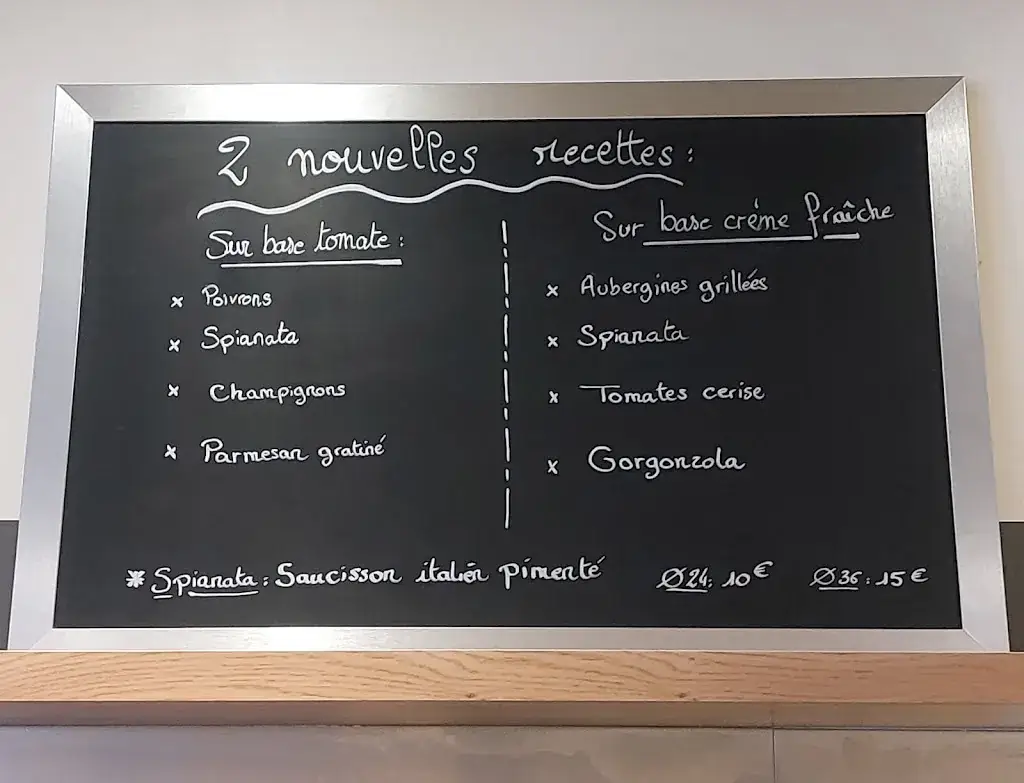 2 nouvelles recettes :
Sur base tomate :
x Poivrons
x Spianata
x Champignons
x Parmesan gratiné
Sur base créme fraîche
x Aubergines grillées
x Spianata
x Tomates cerise
x Gorgonzola
* Spianata : Saucisson italien pimenté
Ø24 : 10 € Ø36 : 15 €